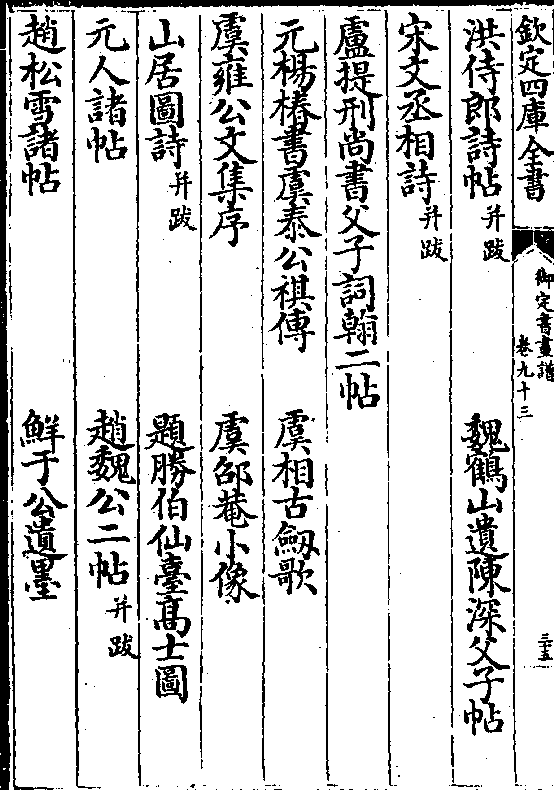 欽定四庫全書
御定書畫譜
卷九十三
三五
洪侍郎詩帖并跋 魏鶴山遺陳深父子帖
宋文丞相詩并跋
盧提刑尚書父子詞翰二帖
元楊椿書虞泰公祺傳 虞相古劒歌
虞雍公文集序 虞邵菴小像
山居圖詩并跋 題勝伯仙臺高士圖
元人諸帖 趙魏公二帖并跋
趙松雪諸帖 鮮于公遺墨